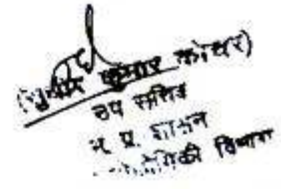 (सुधीर कुमार कोचर)
उप सचिव
म. प्र. शासन
विभाग